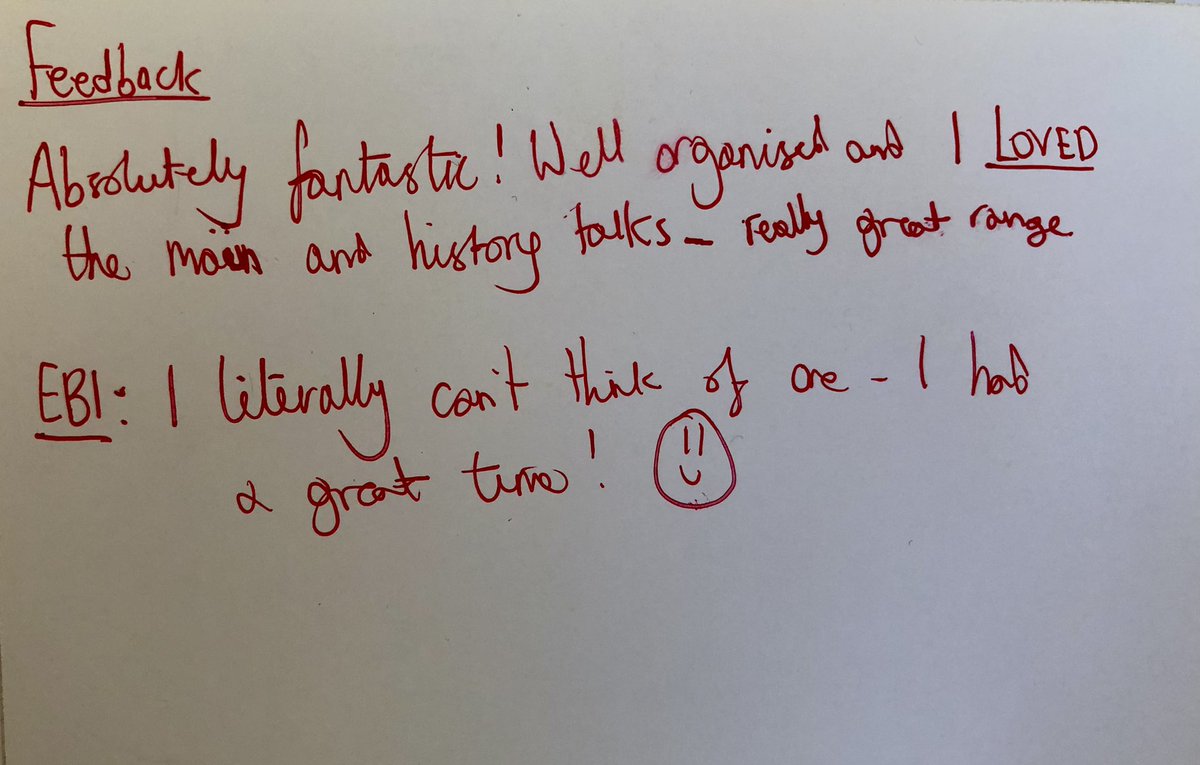 Feedback
Absolutely fantastic! Well organised and I LOVED
the main and history talks - really great range
EBI: I literally can't think of one - I had
a great time!